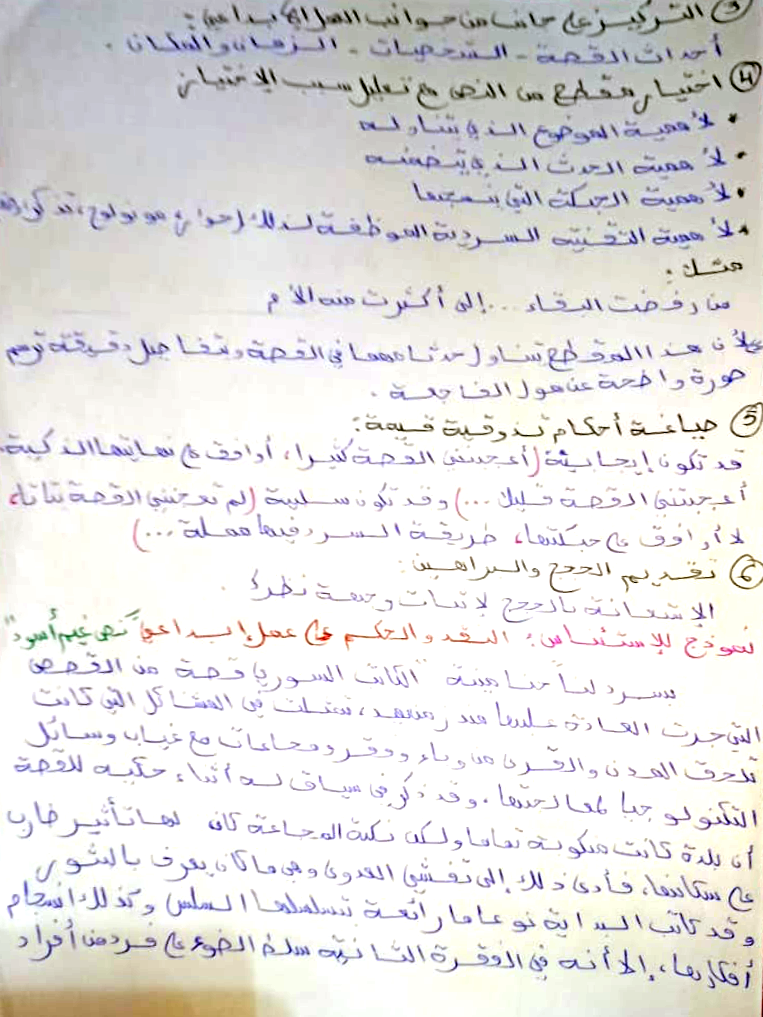 ③ التركيز على جانب من جوانب العمل الإبداعي:
أحداث القصة - الشخصيات - الزمان والمكان.
④ اختيار مقطع من النص مع تعليل سبب الاختيار
• لأهمية الموضوع الذي يتناوله
• لأهمية الحدث الذي يتضمنه
• لأهمية الحبكة التي
• لأهمية التقنية السردية الموظفة لذلك (حوار، مونولوج،
مثل:
من رفضت البقاء ... إلى أكثرت منه الأم
لأن هذا المقطع تناول حدثا مهما في القصة وبتفاصيل دقيقة ترسم
صورة واضحة عن هول الفاجعة.
⑤ صياغة أحكام تذوقية قيمة:
قد تكون إيجابية (أعجبتني القصة كثيرا، أوافق على نهايتها الذكية،
أعجبتني القصة قليلا ...) وقد تكون سلبية (لم تعجبني القصة بتاتا،
لا أوافق على حبكتها، طريقة السرد فيها مملة ...)
⑥ تقديم الحجج والبراهين:
الاستعانة بالحجج لإثبات وجهة نظرك.
نموذج للإستئناس: النقد والحكم على عمل إبداعي "نص غيم أسود"
يسرد لنا حنا مينة "الكاتب السوري" قصة من القصص
التي جرت العادة عليها منذ زمن بعيد، تمثلت في المشاكل التي كانت
تلحق المدن والقرى من وباء وفقر ومجاعات مع غياب وسائل
التكنولوجيا لمعالجتها. وقد ذكر في سياق له أثناء حكيه للقصة
أن بلدة كانت منكوبة تماما ولكن نكبة المجاعة كان لها تأثير ضارب
على سكانها، فأدى ذلك إلى تفشي العدوى وهي ما كان يعرف
وقد كانت البداية نوعا ما رائعة بتسلسلها السلس وكذلك انسجام
أفكارها، إلا أنه في الفقرة الثانية سلط الضوء على فرد من أفراد